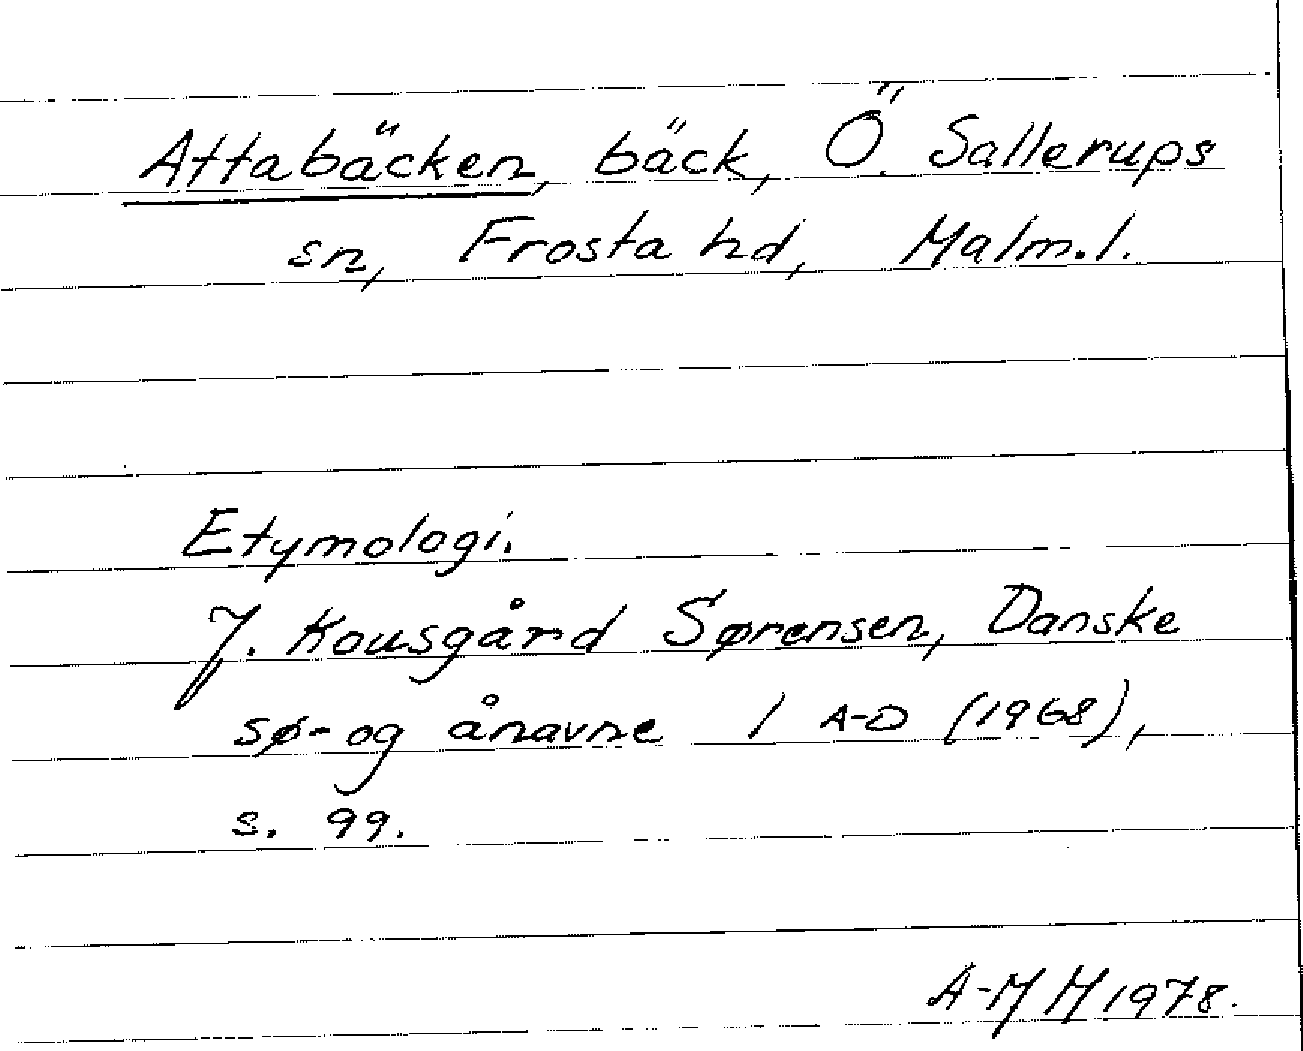 Attabäcken, bäck, Ö. Sallerups
sn, Frosta hd, Malm.l.
Etymologi.
J. Kousgård Sørensen, Danske
sø- og ånavne 1 A-D (1968),
s. 99.
A-M H 1978.